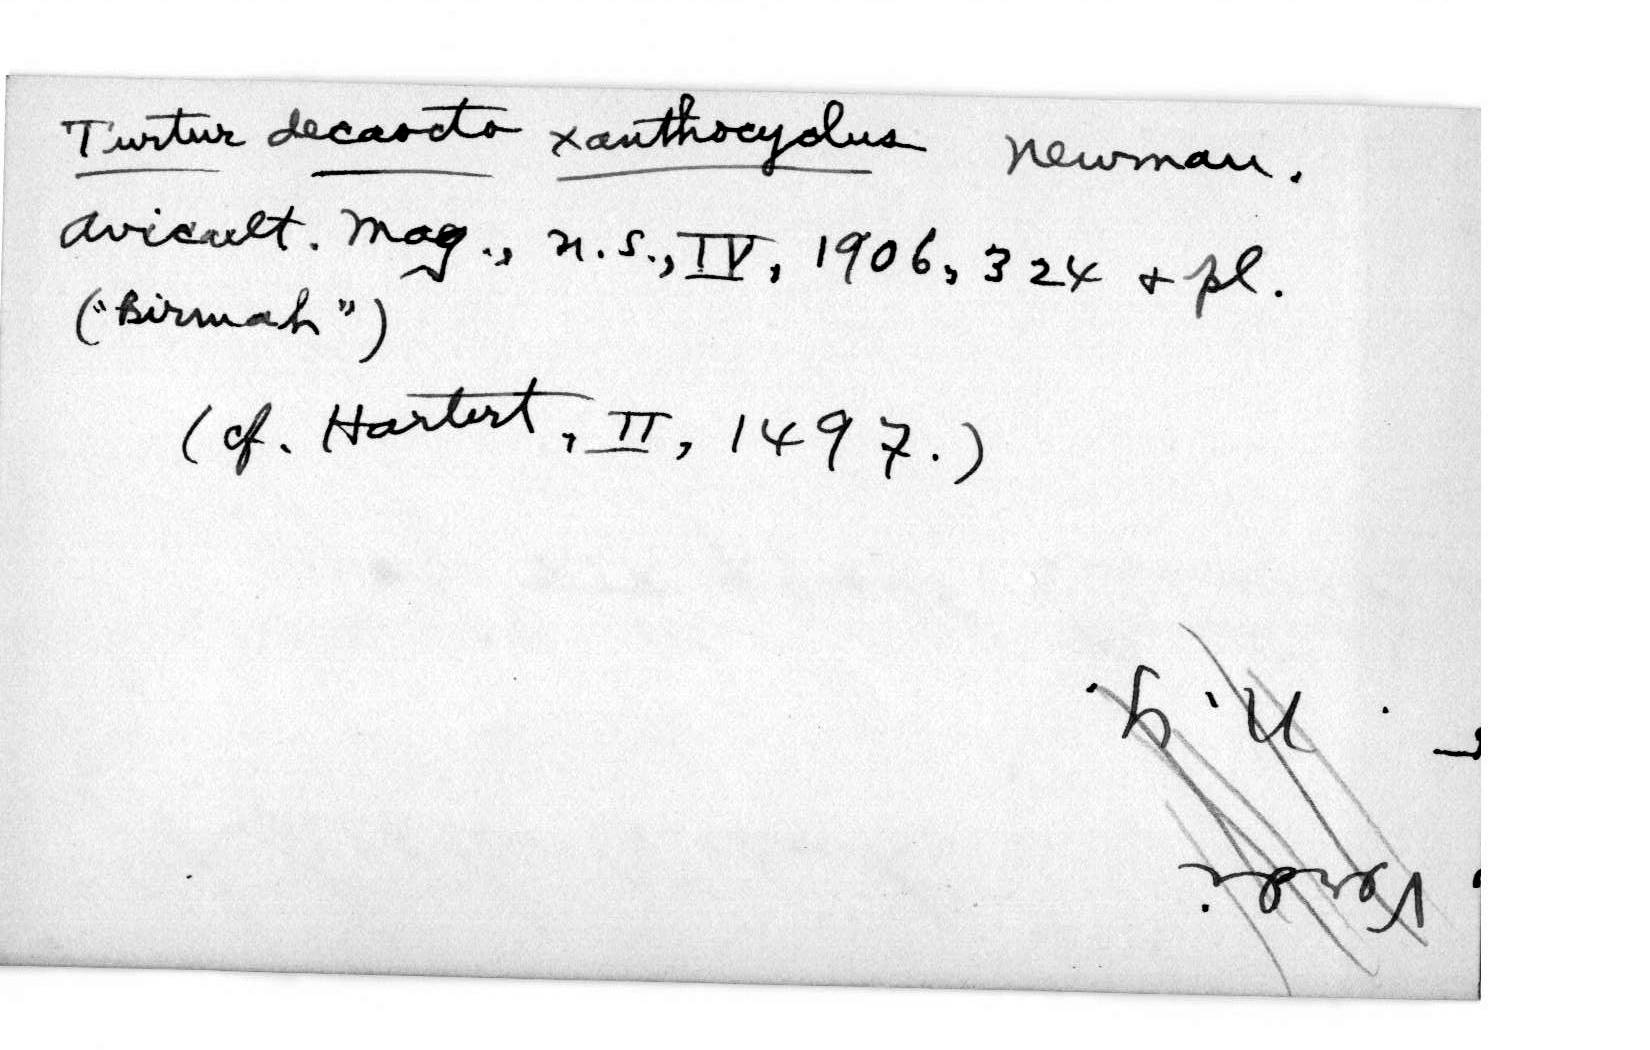 Turtur decaocto xanthocyclus Newman.
Avicult. Mag., n.s., IV, 1906, 324 & pl.
("Birmah")
(cf. Hartert, II, 1497.)